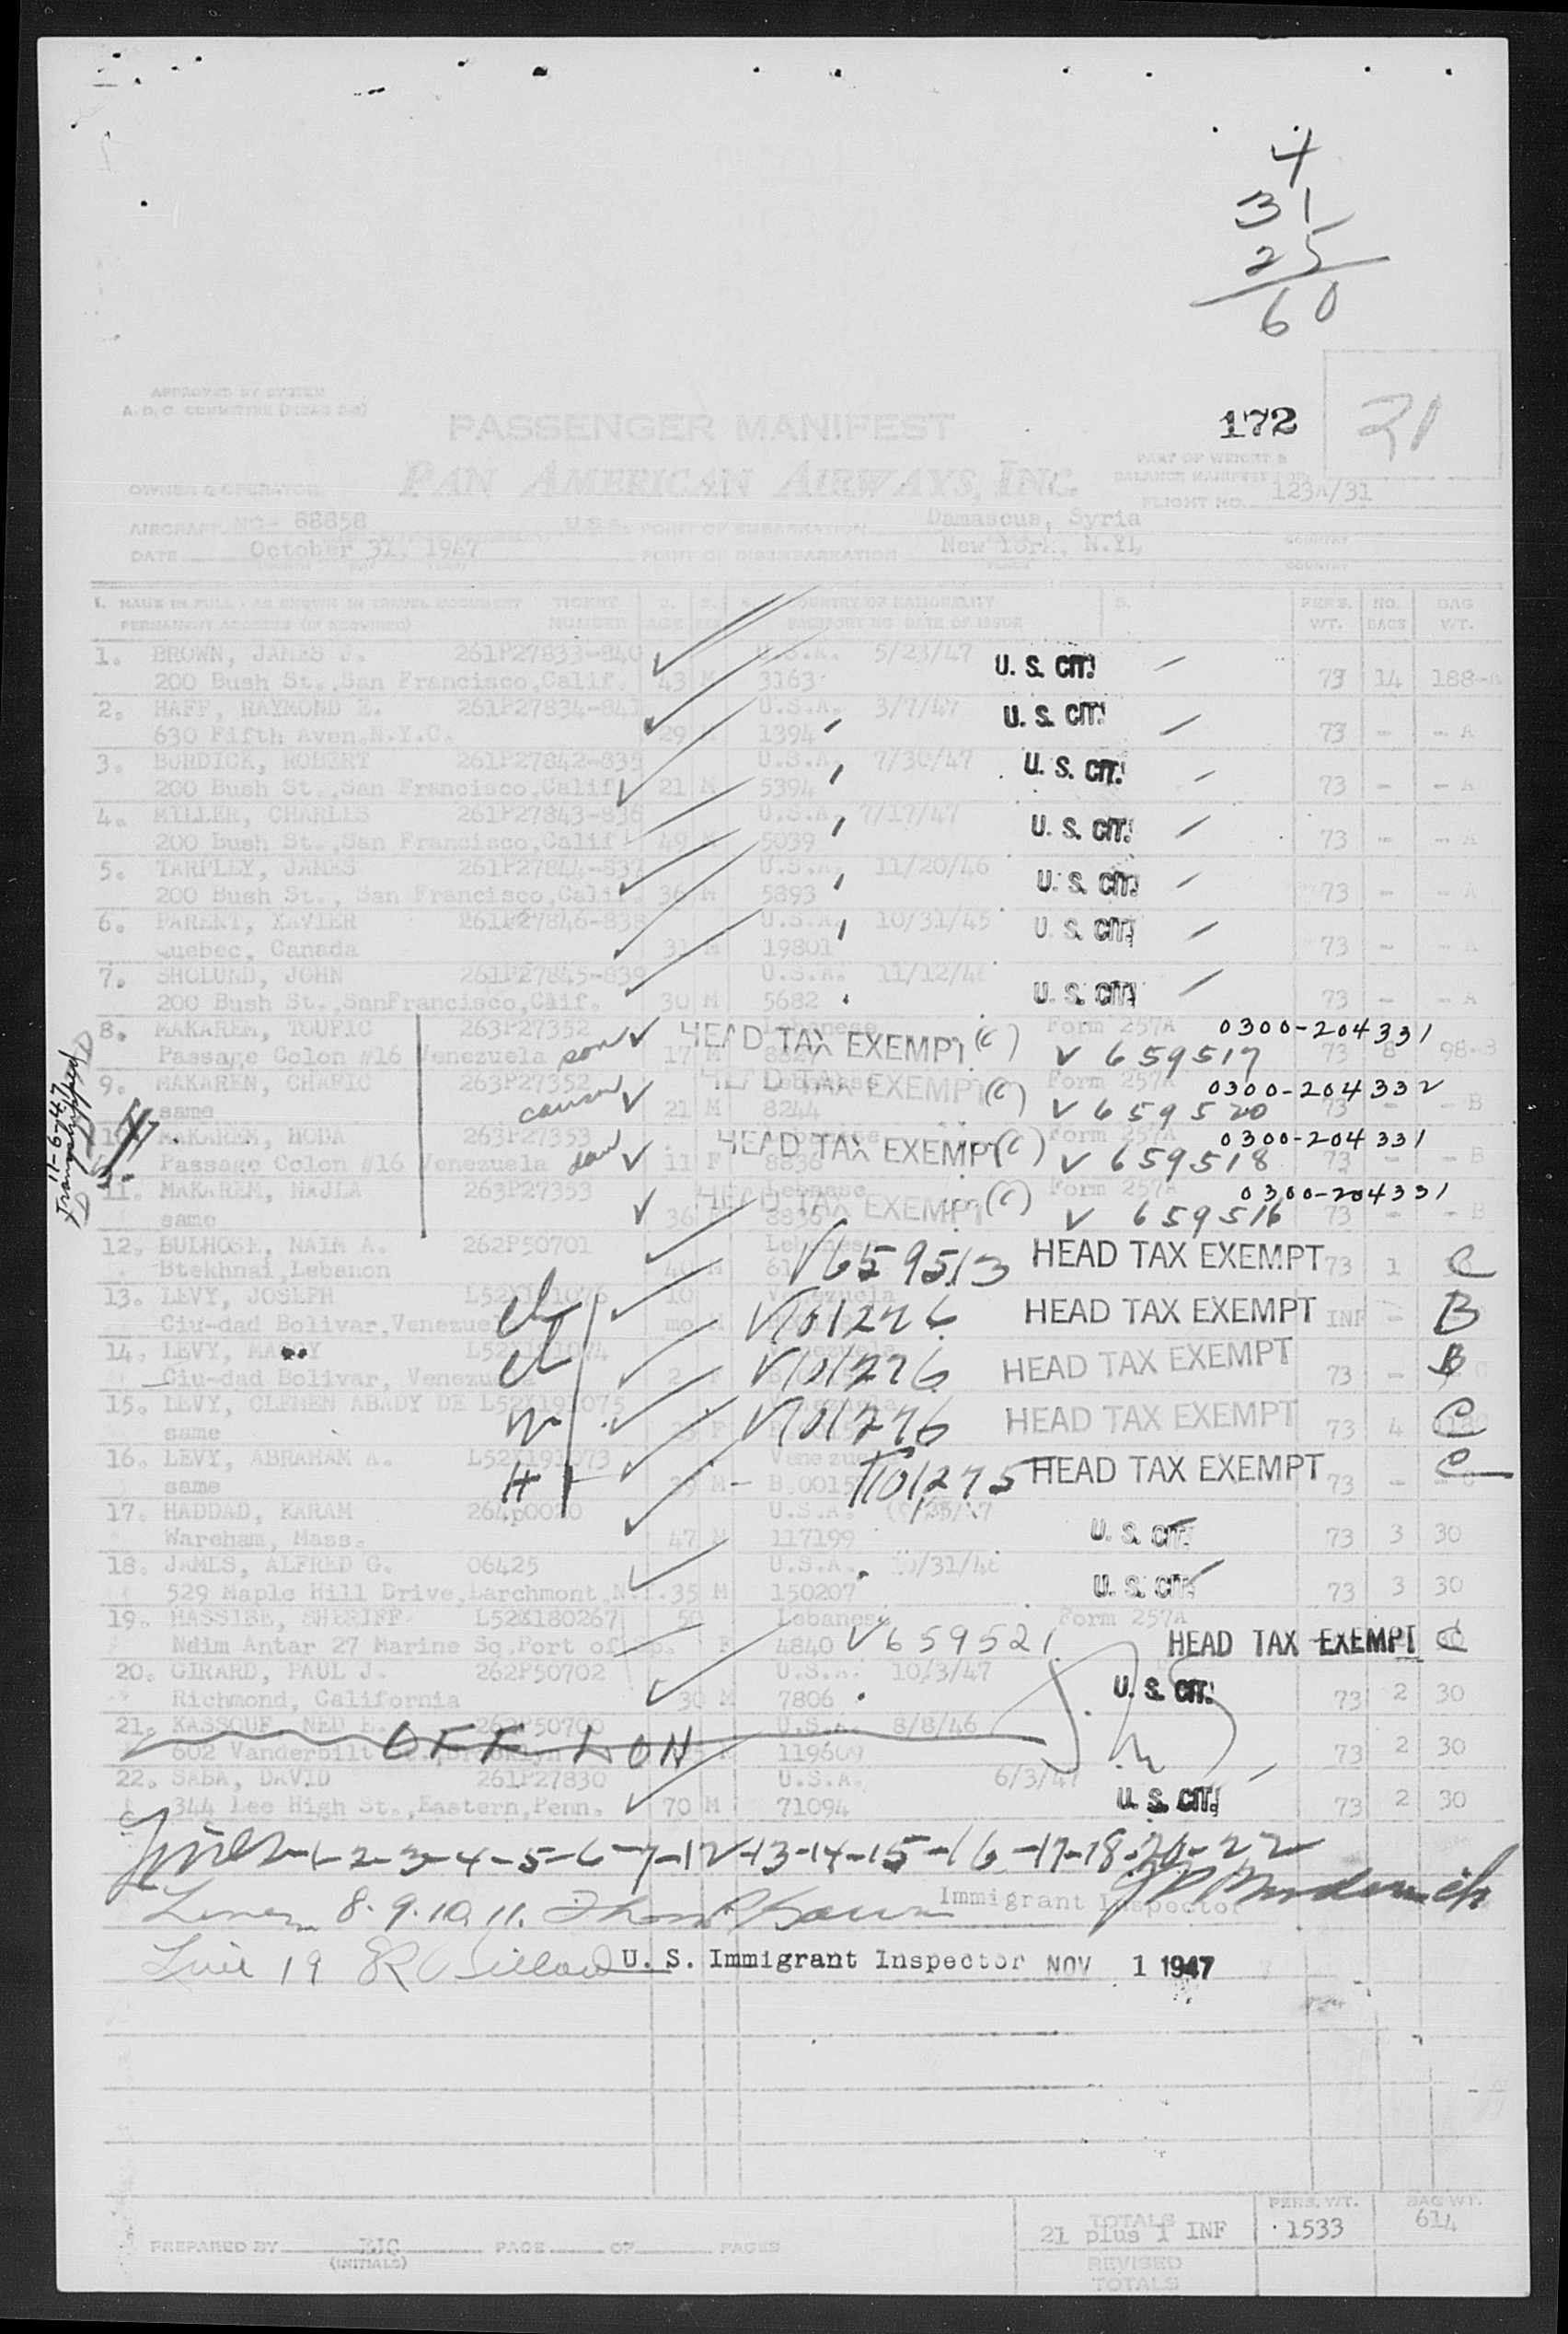 4
31
25
60
APPROVED BY SYSTEM
172
21
PASSENGER MANIFEST
PART OF WEIGHT &
BALANCE MANIFEST
PAN AMERICAN AIRWAYS, INC.
OWNER & OPERATOR
FLIGHT NO. 123A/31
AIRCRAFT NC- 88858 U.S. POINT OF EMBARKATION Damascus, Syria COUNTRY
DATE October 31, 1947 POINT OF DISEMBARKATION New York, N.Y. COUNTRY
1. NAME IN FULL - AS SHOWN IN TRAVEL DOCUMENT TICKET COUNTRY OF NATIONALITY 5. PERS. NO. BAG
PERMANENT ADDRESS (IF REQUIRED) NUMBER AGE SEX PASSPORT NO. DATE OF ISSUE WT. BAGS WT.
1. BROWN, JAMES J. 261P27833-840 U.S.A. 5/23/47 U. S. CIT.
200 Bush St., San Francisco, Calif. 43 M 3163 73 14 188-A
2. HAFF, RAYMOND E. 261P27834-841 U.S.A. 3/7/47 U. S. CIT.
630 Fifth Aven. N.Y.C. 29 M 1394 73 - - A
3. BURDICK, ROBERT 261P27842-835 U.S.A. 7/30/47 U. S. CIT.
200 Bush St., San Francisco, Calif 21 M 5394 73 - - A
4. MILLER, CHARLES 261P27843-836 U.S.A. 7/17/47 U. S. CIT.
200 Bush St., San Francisco, Calif 49 M 5039 73 - - A
5. TARPLEY, JAMES 261P27844-837 U.S.A. 11/20/46 U. S. CIT.
200 Bush St., San Francisco, Calif. 36 M 5893 73 - - A
6. PARENT, XAVIER 261P27846-838 U.S.A. 10/31/45 U. S. CIT.
Quebec, Canada 31 M 19801 73 - - A
7. SHOLUND, JOHN 261P27845-839 U.S.A. 11/12/46 U. S. CIT.
200 Bush St., SanFrancisco, Clif. 30 M 5682 73 - - A
8. MAKAREM, TOUFIC 263P27352 son HEAD TAX EXEMPT (C) Form 257A 0300-204331
Passage Colon #16 Venezuela 17 M V 659517 73 8 98-B
9. MAKAREN, CHAFIC 263P27352 HEAD TAX EXEMPT (C) Form 257A 0300-204332
same 21 M 8244 V 659520 73 - - B
10. MAKAREM, HODA 263P27353 dau HEAD TAX EXEMPT (C) Form 257A 0300-204331
Passage Colon #16 Venezuela 11 F 8836 V 659518 73 - - B
11. MAKAREM, NAJLA 263P27353 HEAD TAX EXEMPT (C) Form 257A 0300-204331
same 36 8836 V 659516 73 - - B
11-6-47
12. BULHOSE, NAIM A. 262P50701 Lebanese V659513 HEAD TAX EXEMPT C
Btekhnai, Lebanon M 73 1
13. LEVY, JOSEPH 10 Venezuela V101276 HEAD TAX EXEMPT B
Ciu-dad Bolivar, Venezuela mo INF -
14. LEVY, V101276 HEAD TAX EXEMPT B
Ciu-dad Bolivar, Venezuela 2 73 -
15. LEVY, CLEMEN ABADY DE L52X191075 V101276 HEAD TAX EXEMPT C
same F 73 4
16. LEVY, ABRAHAM A. L52X191073 Venezuela V101275 HEAD TAX EXEMPT C
same H 39 M 73 -
17. HADDAD, KARAM U.S.A. U. S. CIT.
Wareham, Mass. 47 M 117199 73 3 30
18. JAMES, ALFRED G. 06425 U.S.A. 10/31/46 U. S. CIT.
529 Maple Hill Drive, Larchmont, N.Y. 35 M 150207 73 3 30
19. HASSIBE, SHERIFF L52X180267 50 Lebanese Form 257A
Ndim Antar 27 Marine Sq. Port of F 4840 V659521 HEAD TAX EXEMPT C
20. GIRARD, PAUL J. 262P50702 U.S.A. 10/3/47 U. S. CIT.
Richmond, California 30 M 7806 73 2 30
21. KASSOUF, NED E. 262P50700 U.S.A. 8/8/46
602 Vanderbilt OFF LON 119609 73 2 30
22. SABA, DAVID 261P27830 U.S.A. 6/3/47 U. S. CIT.
344 Lee High St., Eastern, Penn. 70 M 71094 73 2 30
Lines-1-2-3-4-5-6-7-12-13-14-15-16-17-18-20-22
Lines 8.9.10.11. Immigrant Inspector
Line 19 U. S. Immigrant Inspector NOV 1 1947
TOTALS PERS. WT. BAG WT.
21 plus 1 INF 1533 614
PREPARED BY PAGE OF PAGES
(INITIALS)
REVISED
TOTALS